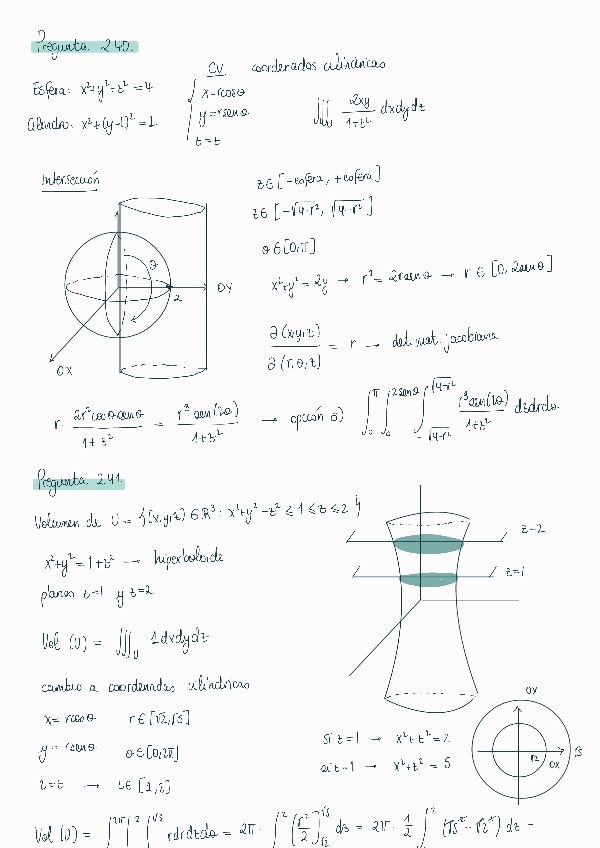 Pregunta 2.40.
CV coordenadas cilíndricas
Esfera: x²+y²+z² = 4
x=rcosθ
y=rsenθ
z=z
Cilindro: x²+(y-1)² = 1
∭ 2xy/(1+z²) dxdydz
Intersección
z∈[-esfera, +esfera]
z∈[-√(4-r²), √(4-r²)]
θ∈[0,π]
x²+y² = 2y → r² = 2rsenθ → r∈[0, 2senθ]
θ
2
OY
OX
∂(x,y,z)/∂(r,θ,z) = r → det mat. jacobiana
r · 2r²cosθsenθ/(1+z²) = r³sen(2θ)/(1+z²) → opción
∫₀^π ∫₀^(2senθ) ∫_(-√(4-r²))^(√(4-r²)) r³sen(2θ)/(1+z²) dzdrdθ
Pregunta 2.41.
Volumen de U = {(x,y,z)∈R³: x²+y²-z² ≤ 1 ≤ z ≤ 2}
z=2
x²+y² = 1+z² → hiperboloide
z=1
planos z=1 y z=2
Vol (U) = ∭_U 1dxdydz
cambio a coordenadas cilíndricas
x= rcosθ r∈[√2,√5]
y= rsenθ θ∈[0,2π]
z=z → z∈[1,2]
si z=1 → x²+z² = 2
si z=1 → x²+z² = 5
OX
√2
OX
√5
Vol (U) = ∫^(2π) ∫^2 ∫^(√5) rdrdzdθ = 2π · ∫^2 [r²/2]_(√2)^(√5) dz = 2π · 1/2 ∫^2 (√5² - √2²) dz =